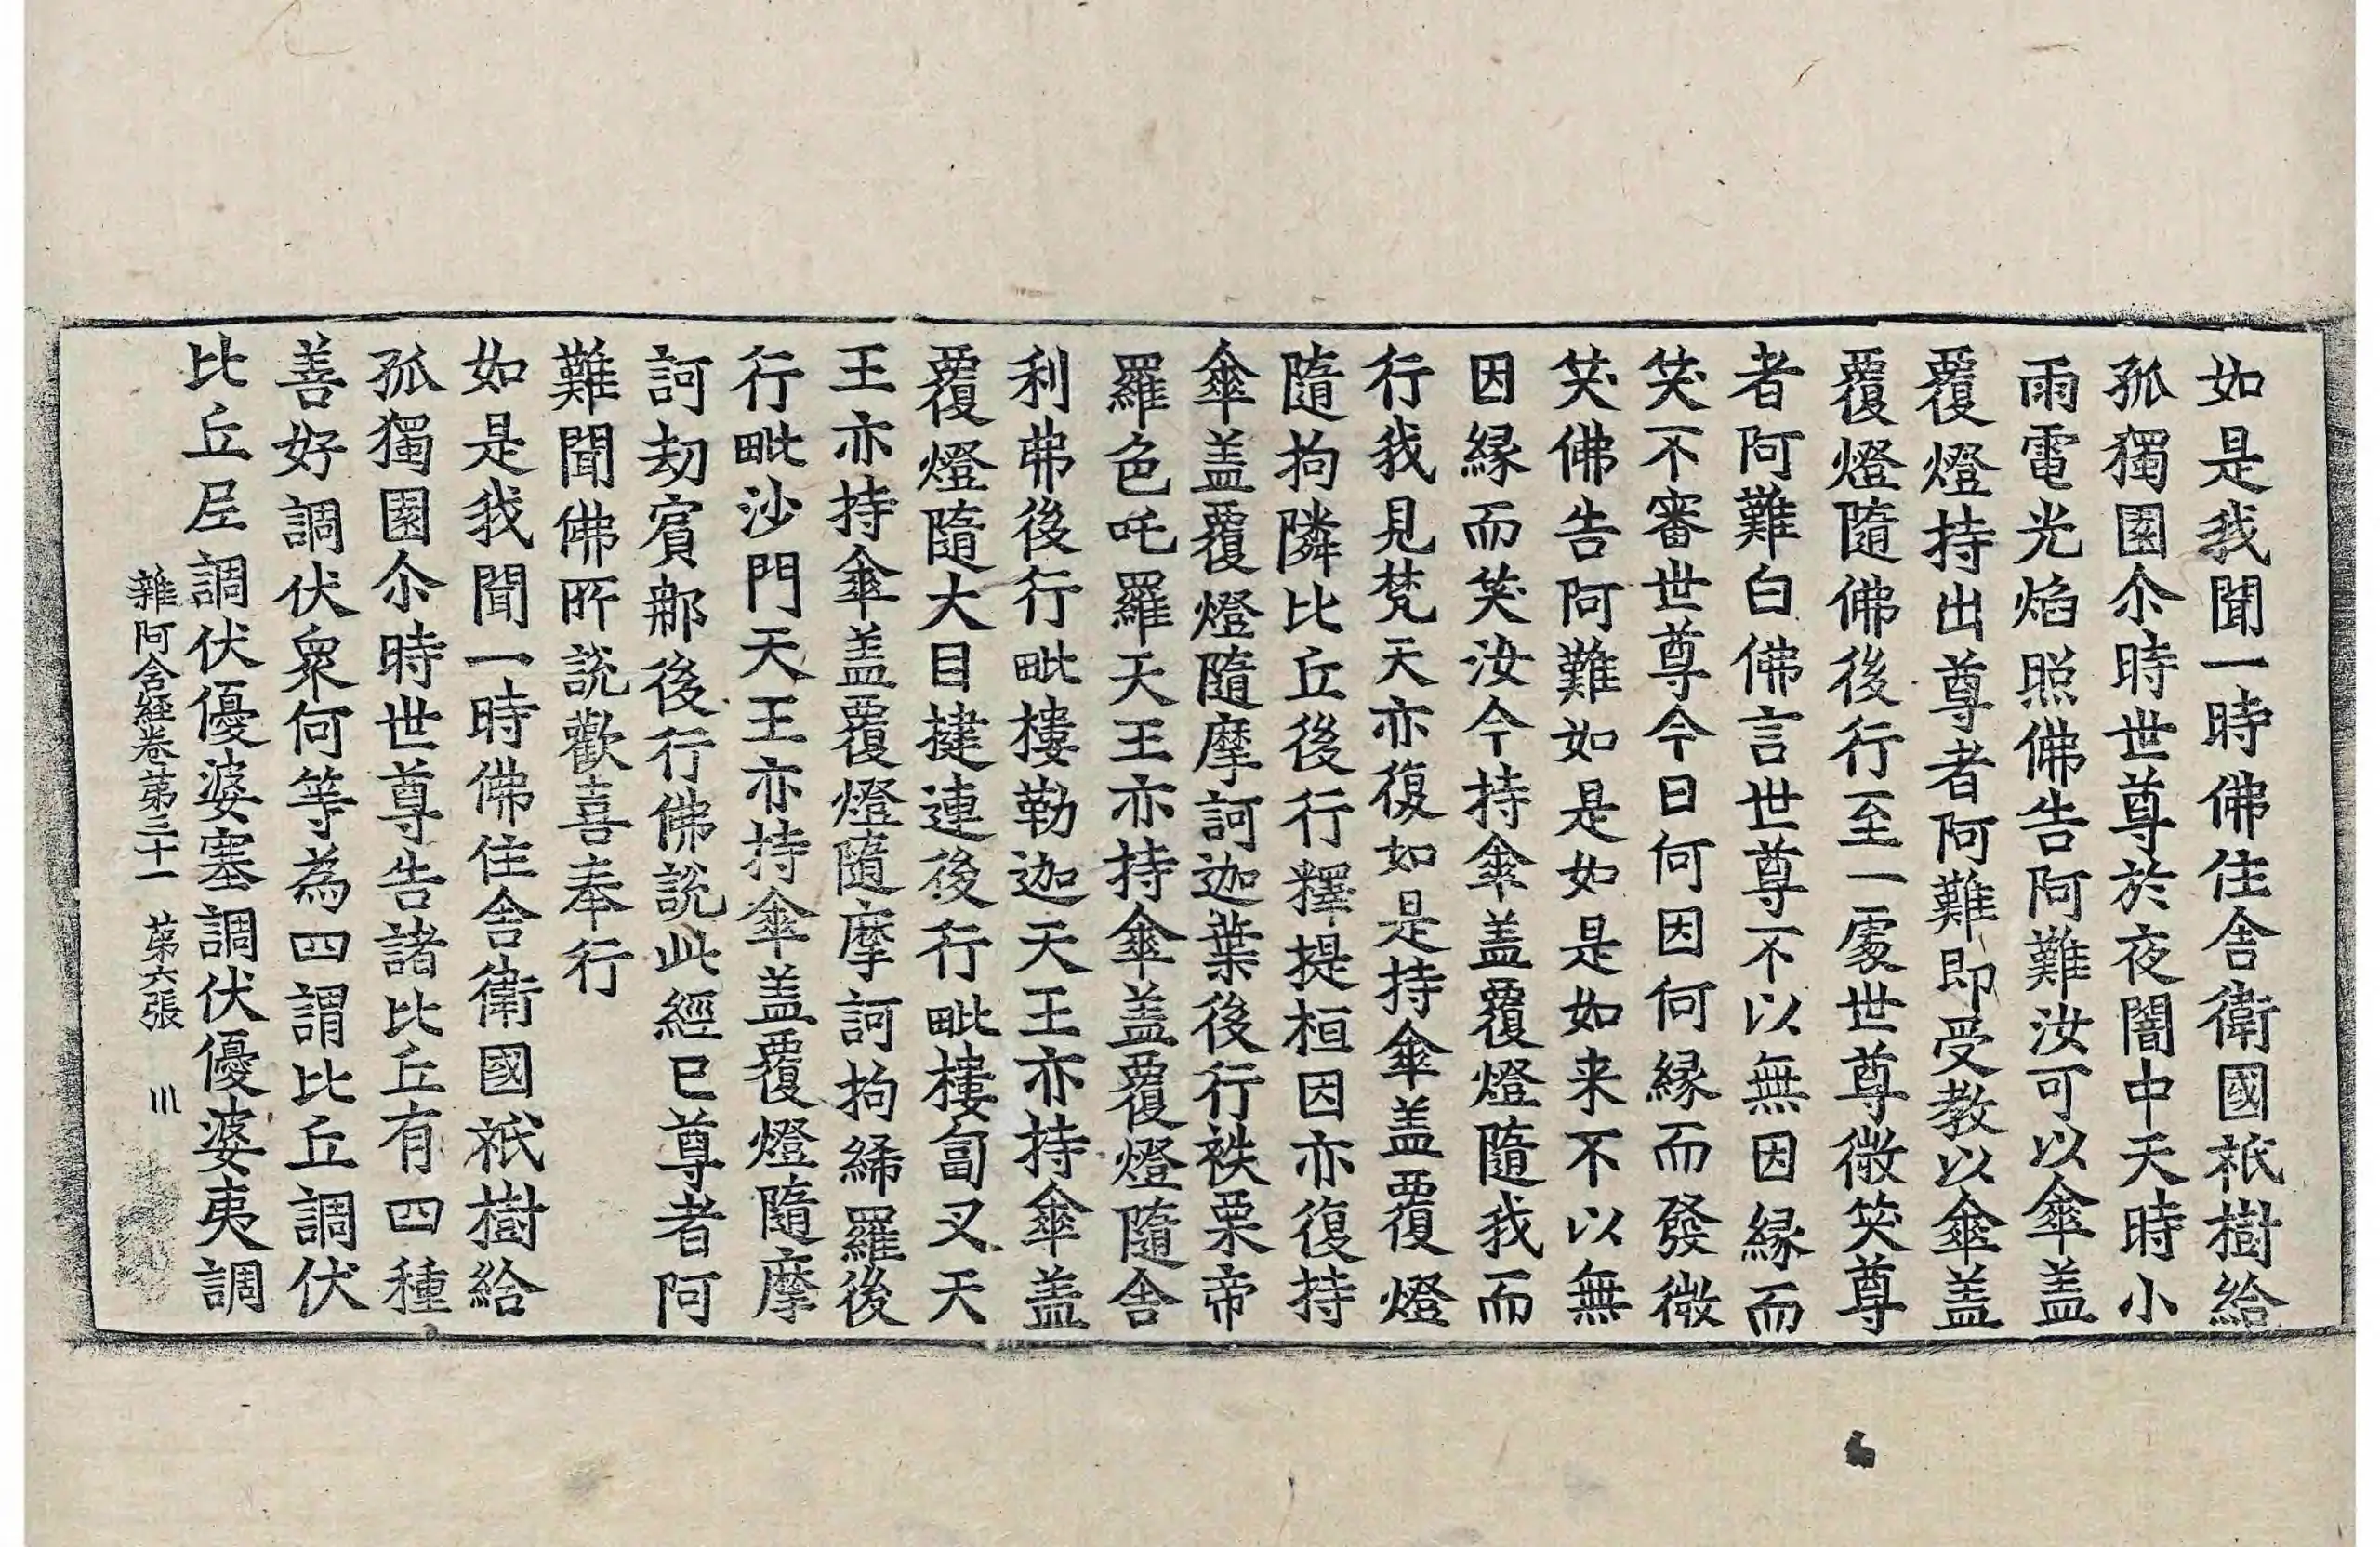 如是我聞一時佛住舍衛國祇樹給
孤獨園尒時世尊於夜闇中天時小
雨電光焰照佛告阿難汝可以傘盖
覆燈持出尊者阿難即受教以傘盖
覆燈隨佛後行至一處世尊微笑尊
者阿難白佛言世尊不以無因緣而
笑不審世尊今日何因何緣而發微
笑佛告阿難如是如是如来不以無
因緣而笑汝今持傘盖覆燈隨我而
行我見梵天亦復如是持傘盖覆燈
隨拘隣比丘後行釋提桓因亦復持
傘盖覆燈隨摩訶迦葉後行袟栗帝
羅色吒羅天王亦持傘盖覆燈隨舍
利弗後行毗樓勒迦天王亦持傘盖
覆燈隨大目揵連後行毗樓匐叉天
王亦持傘盖覆燈隨摩訶拘絺羅後
行毗沙門天王亦持傘盖覆燈隨摩
訶劫賓那後行佛說此經已尊者阿
難聞佛所說歡喜奉行
如是我聞一時佛住舍衛國祇樹給
孤獨園尒時世尊告諸比丘有四種
善好調伏衆何等為四謂比丘調伏
比丘尼調伏優婆塞調伏優婆夷調
雜阿含經卷苐三十一 苐六張 㓁